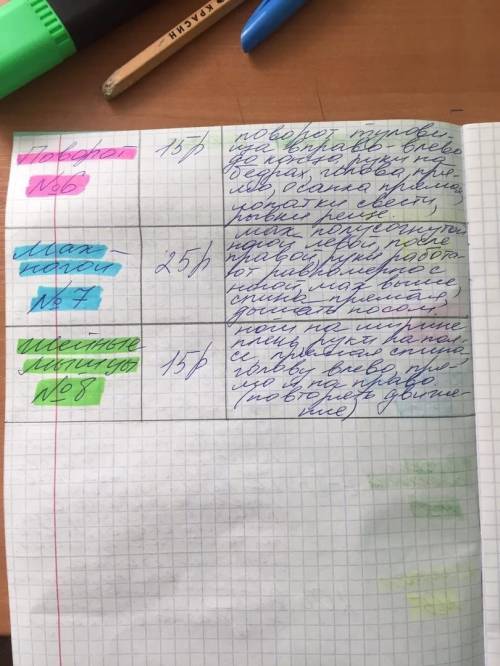 КРАСИН
Поворот
№6
15р
поворот тулови-
ща вправо-влево
до конца, руки на
бедрах, голова пря-
мо, осанка прямая,
лопатки свести,
рывки резче.
Мах
ногой
№7
25р
мах полусогнутой
ногой левой, после
правой, руки работа-
ют равномерно с
ногой, мах выше,
спина прямая,
дышать носом.
шейные
мышцы
№8
15р
ноги на ширине
плеч, руки на поя-
се, прямая спина
голову влево, пря-
мо и на право.
(повторять движе-
ние)